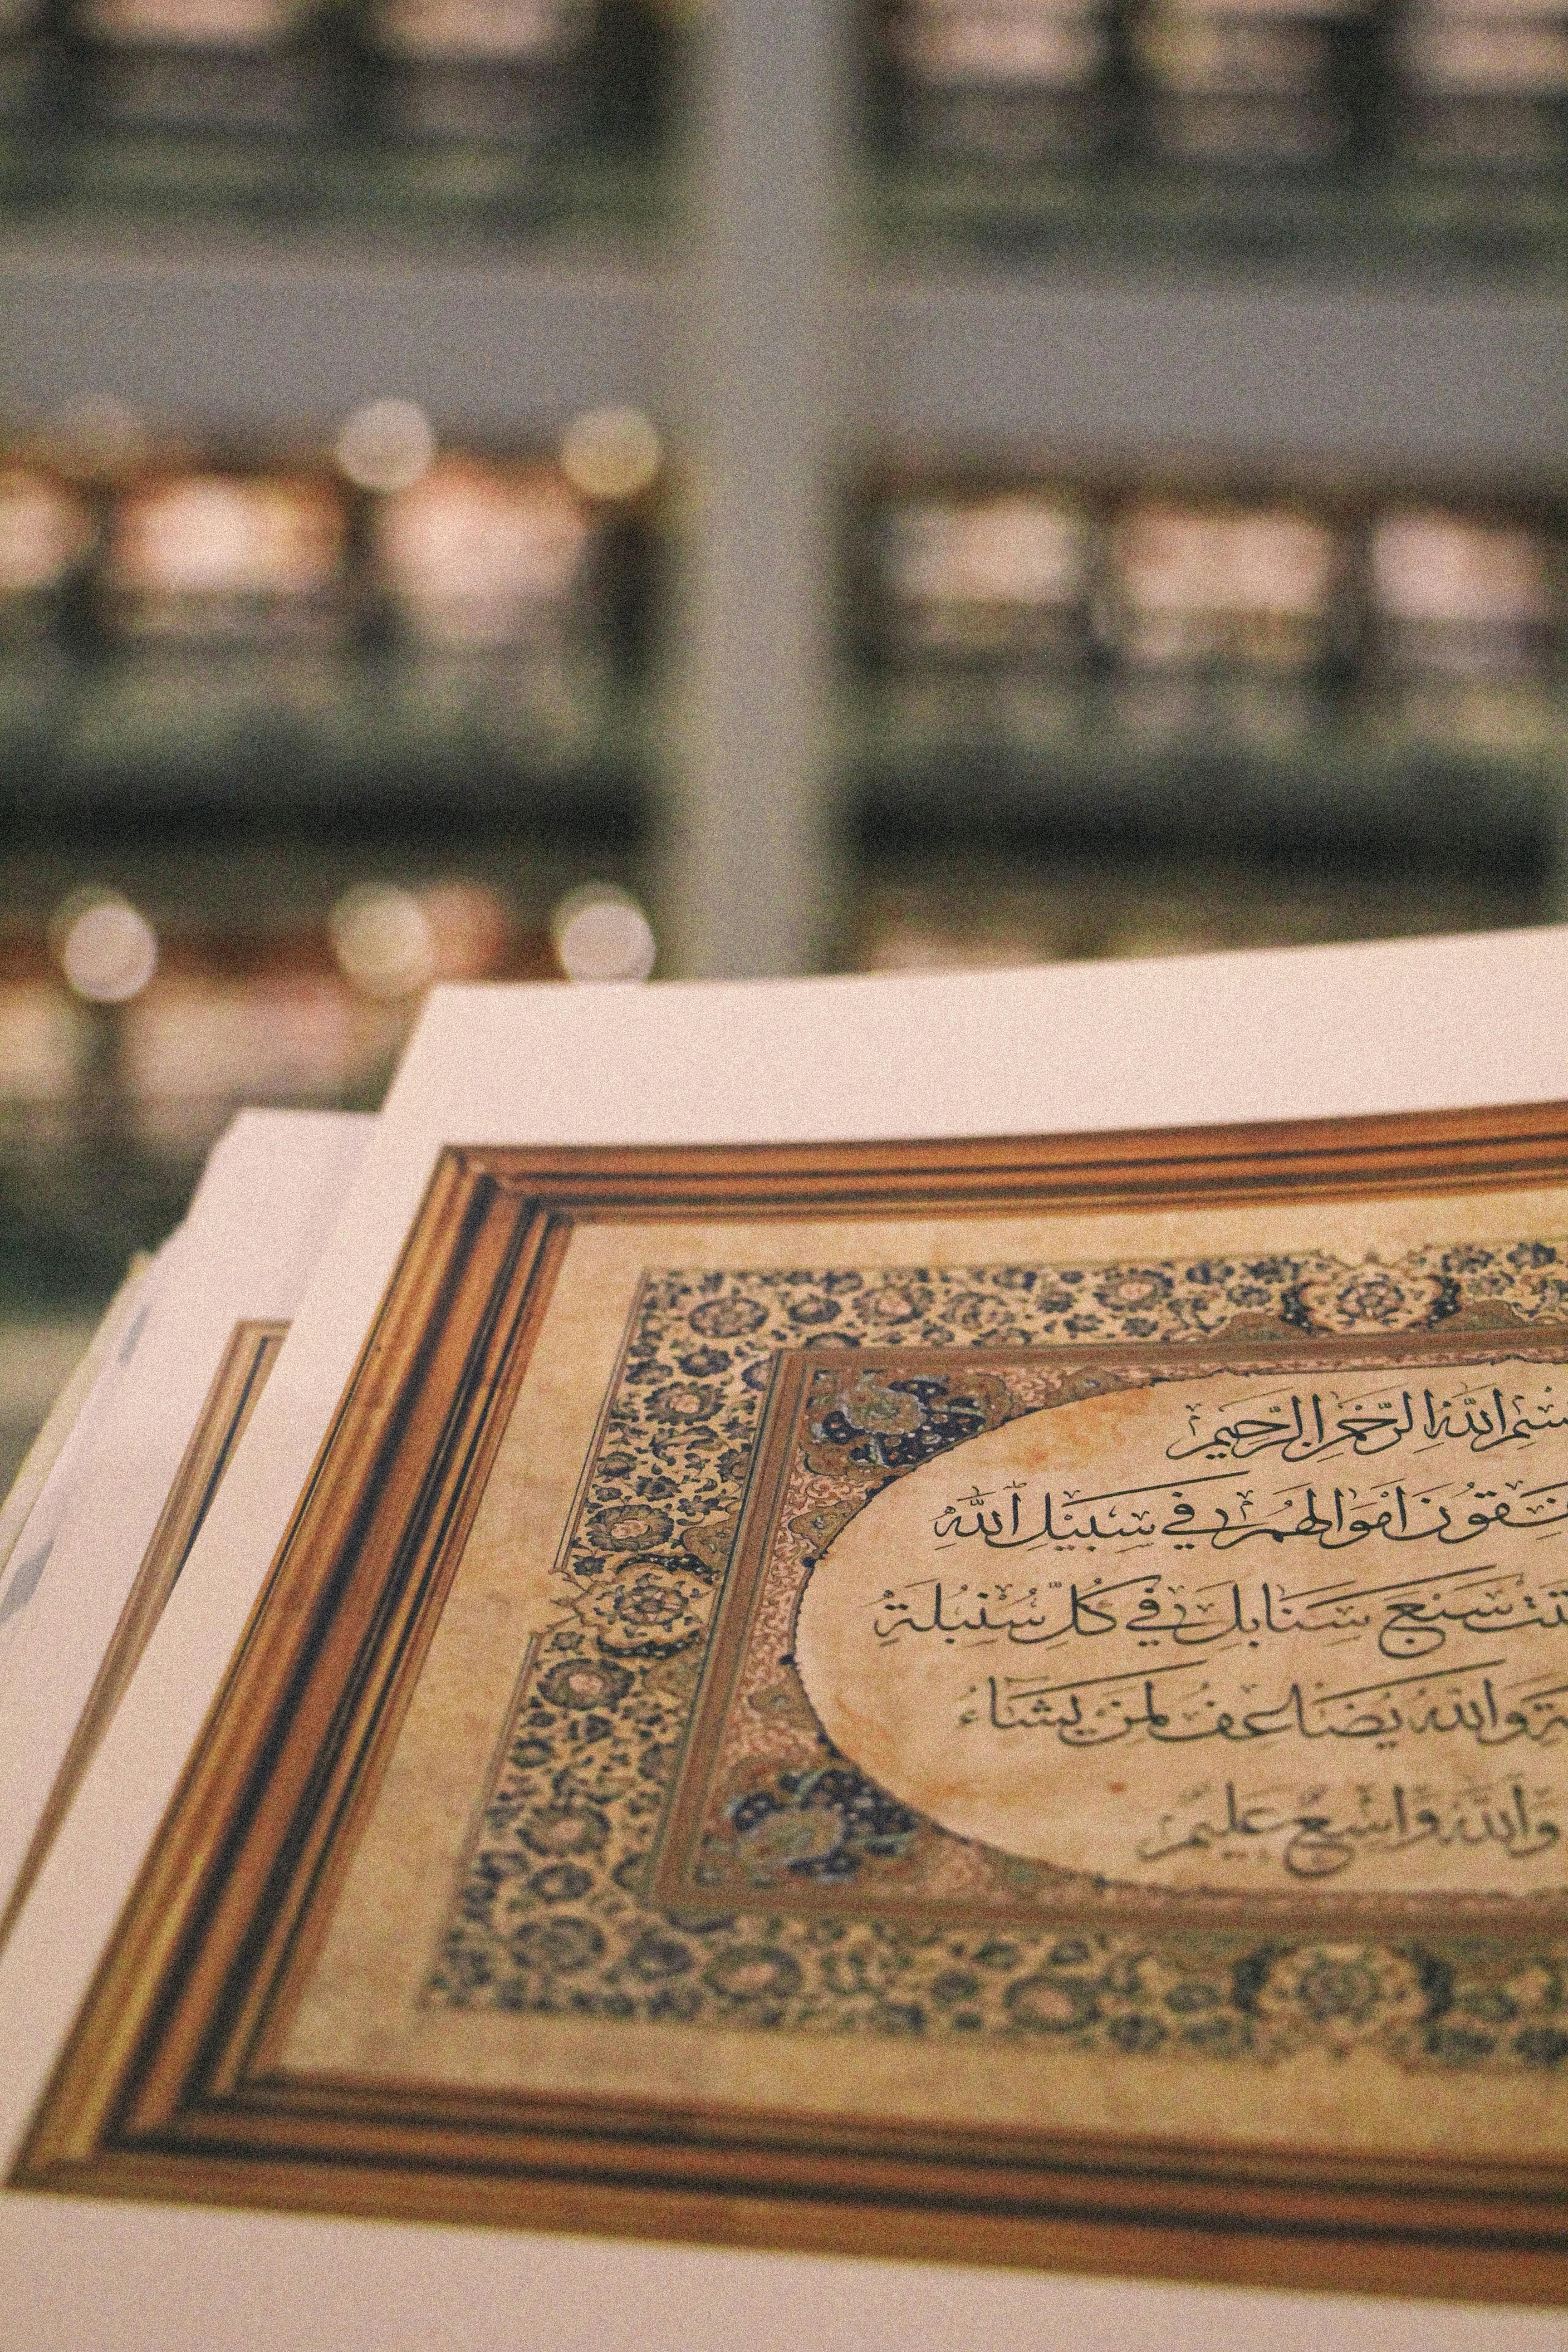 بِسْمِ اللهِ الرَّحْمٰنِ الرَّحِيمِ
يُنفِقُونَ أَمْوَالَهُمْ فِي سَبِيلِ اللهِ
سَبْعَ سَنَابِلَ فِي كُلِّ سُنْبُلَةٍ
وَاللهُ يُضَاعِفُ لِمَنْ يَشَاءُ
وَاللهُ وَاسِعٌ عَلِيمٌ